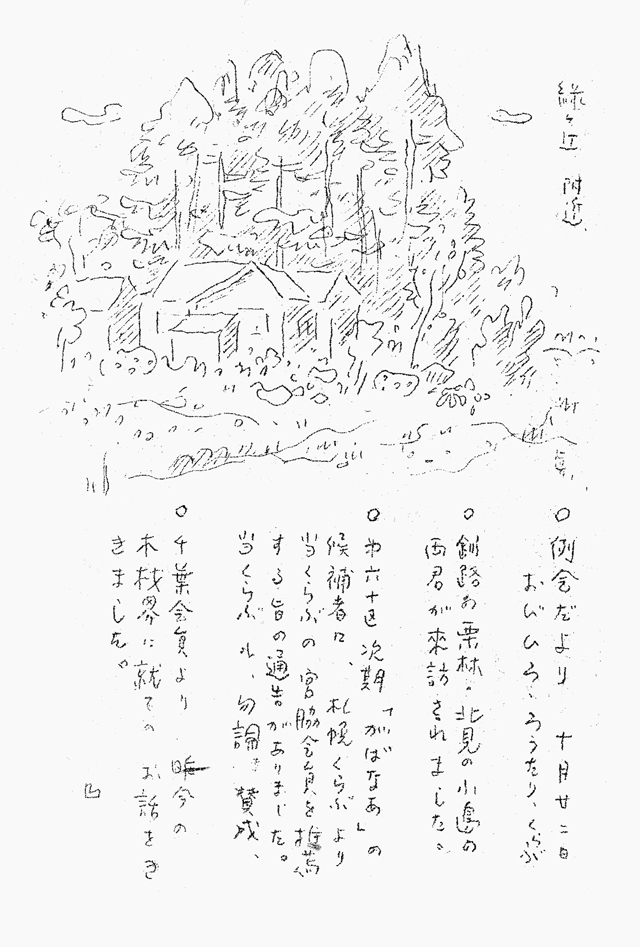 緑ヶ丘附近
○例会だより 十月廿二日
おびひろ、ろうたり、くらぶ
○釧路の栗林。北見の小島の
両君が来訪されました。
○第六十区次期「がばなあ」の
候補者に、札幌くらぶより
当くらぶの宮脇会員を推薦
する旨の通告がありました。
当くらぶハ、勿論、賛成、
○千葉会員より 昨今の
木材界に就ての お話をき
きました。